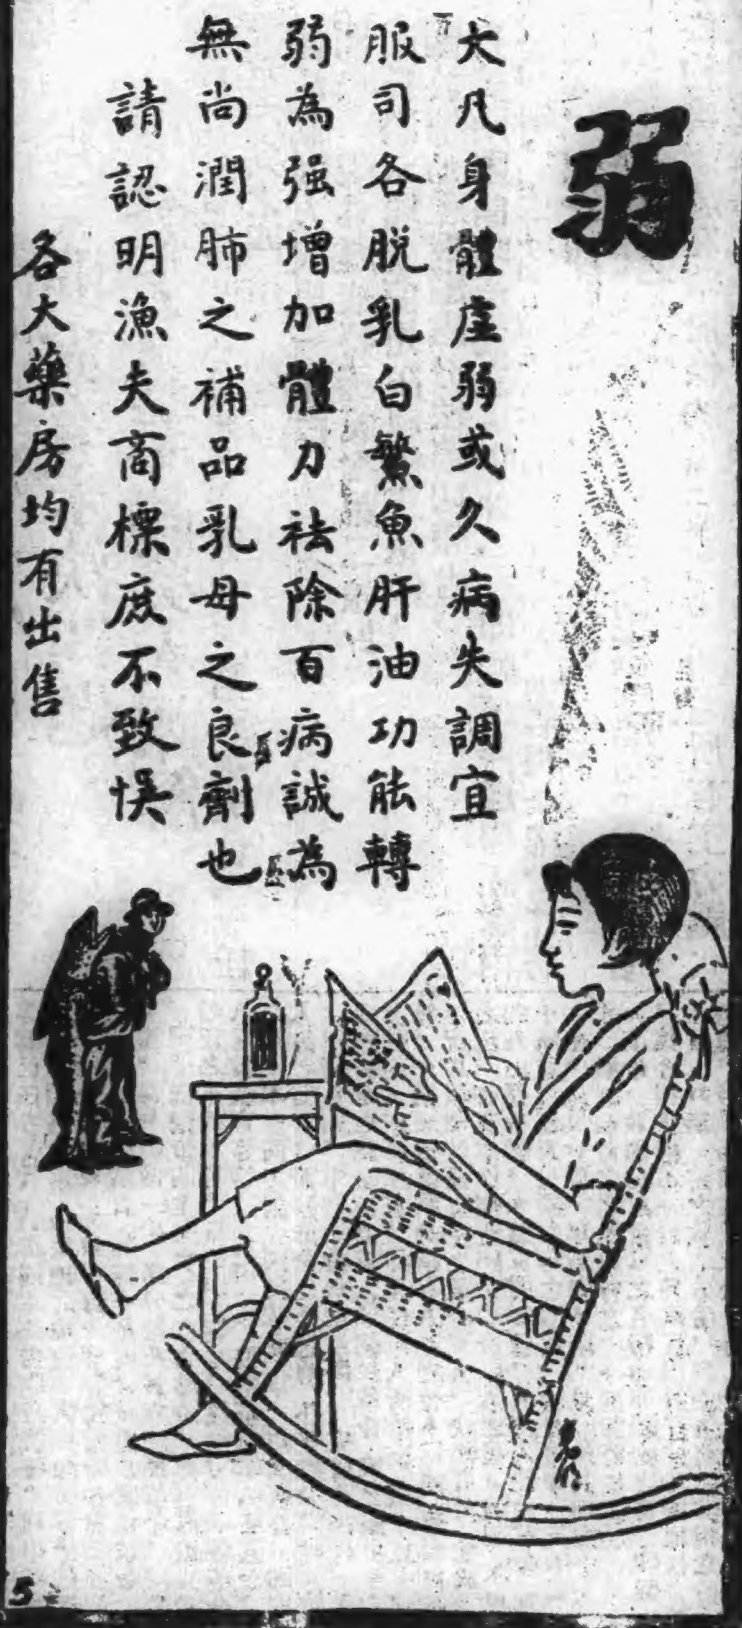 弱
大凡身體虛弱或久病失調宜
服司各脱乳白鰵魚肝油功能轉
弱為强增加體力祛除百病誠為
無尚潤肺之補品乳母之良劑也
請認明漁夫商標庶不致悞
各大藥房均有出售
5